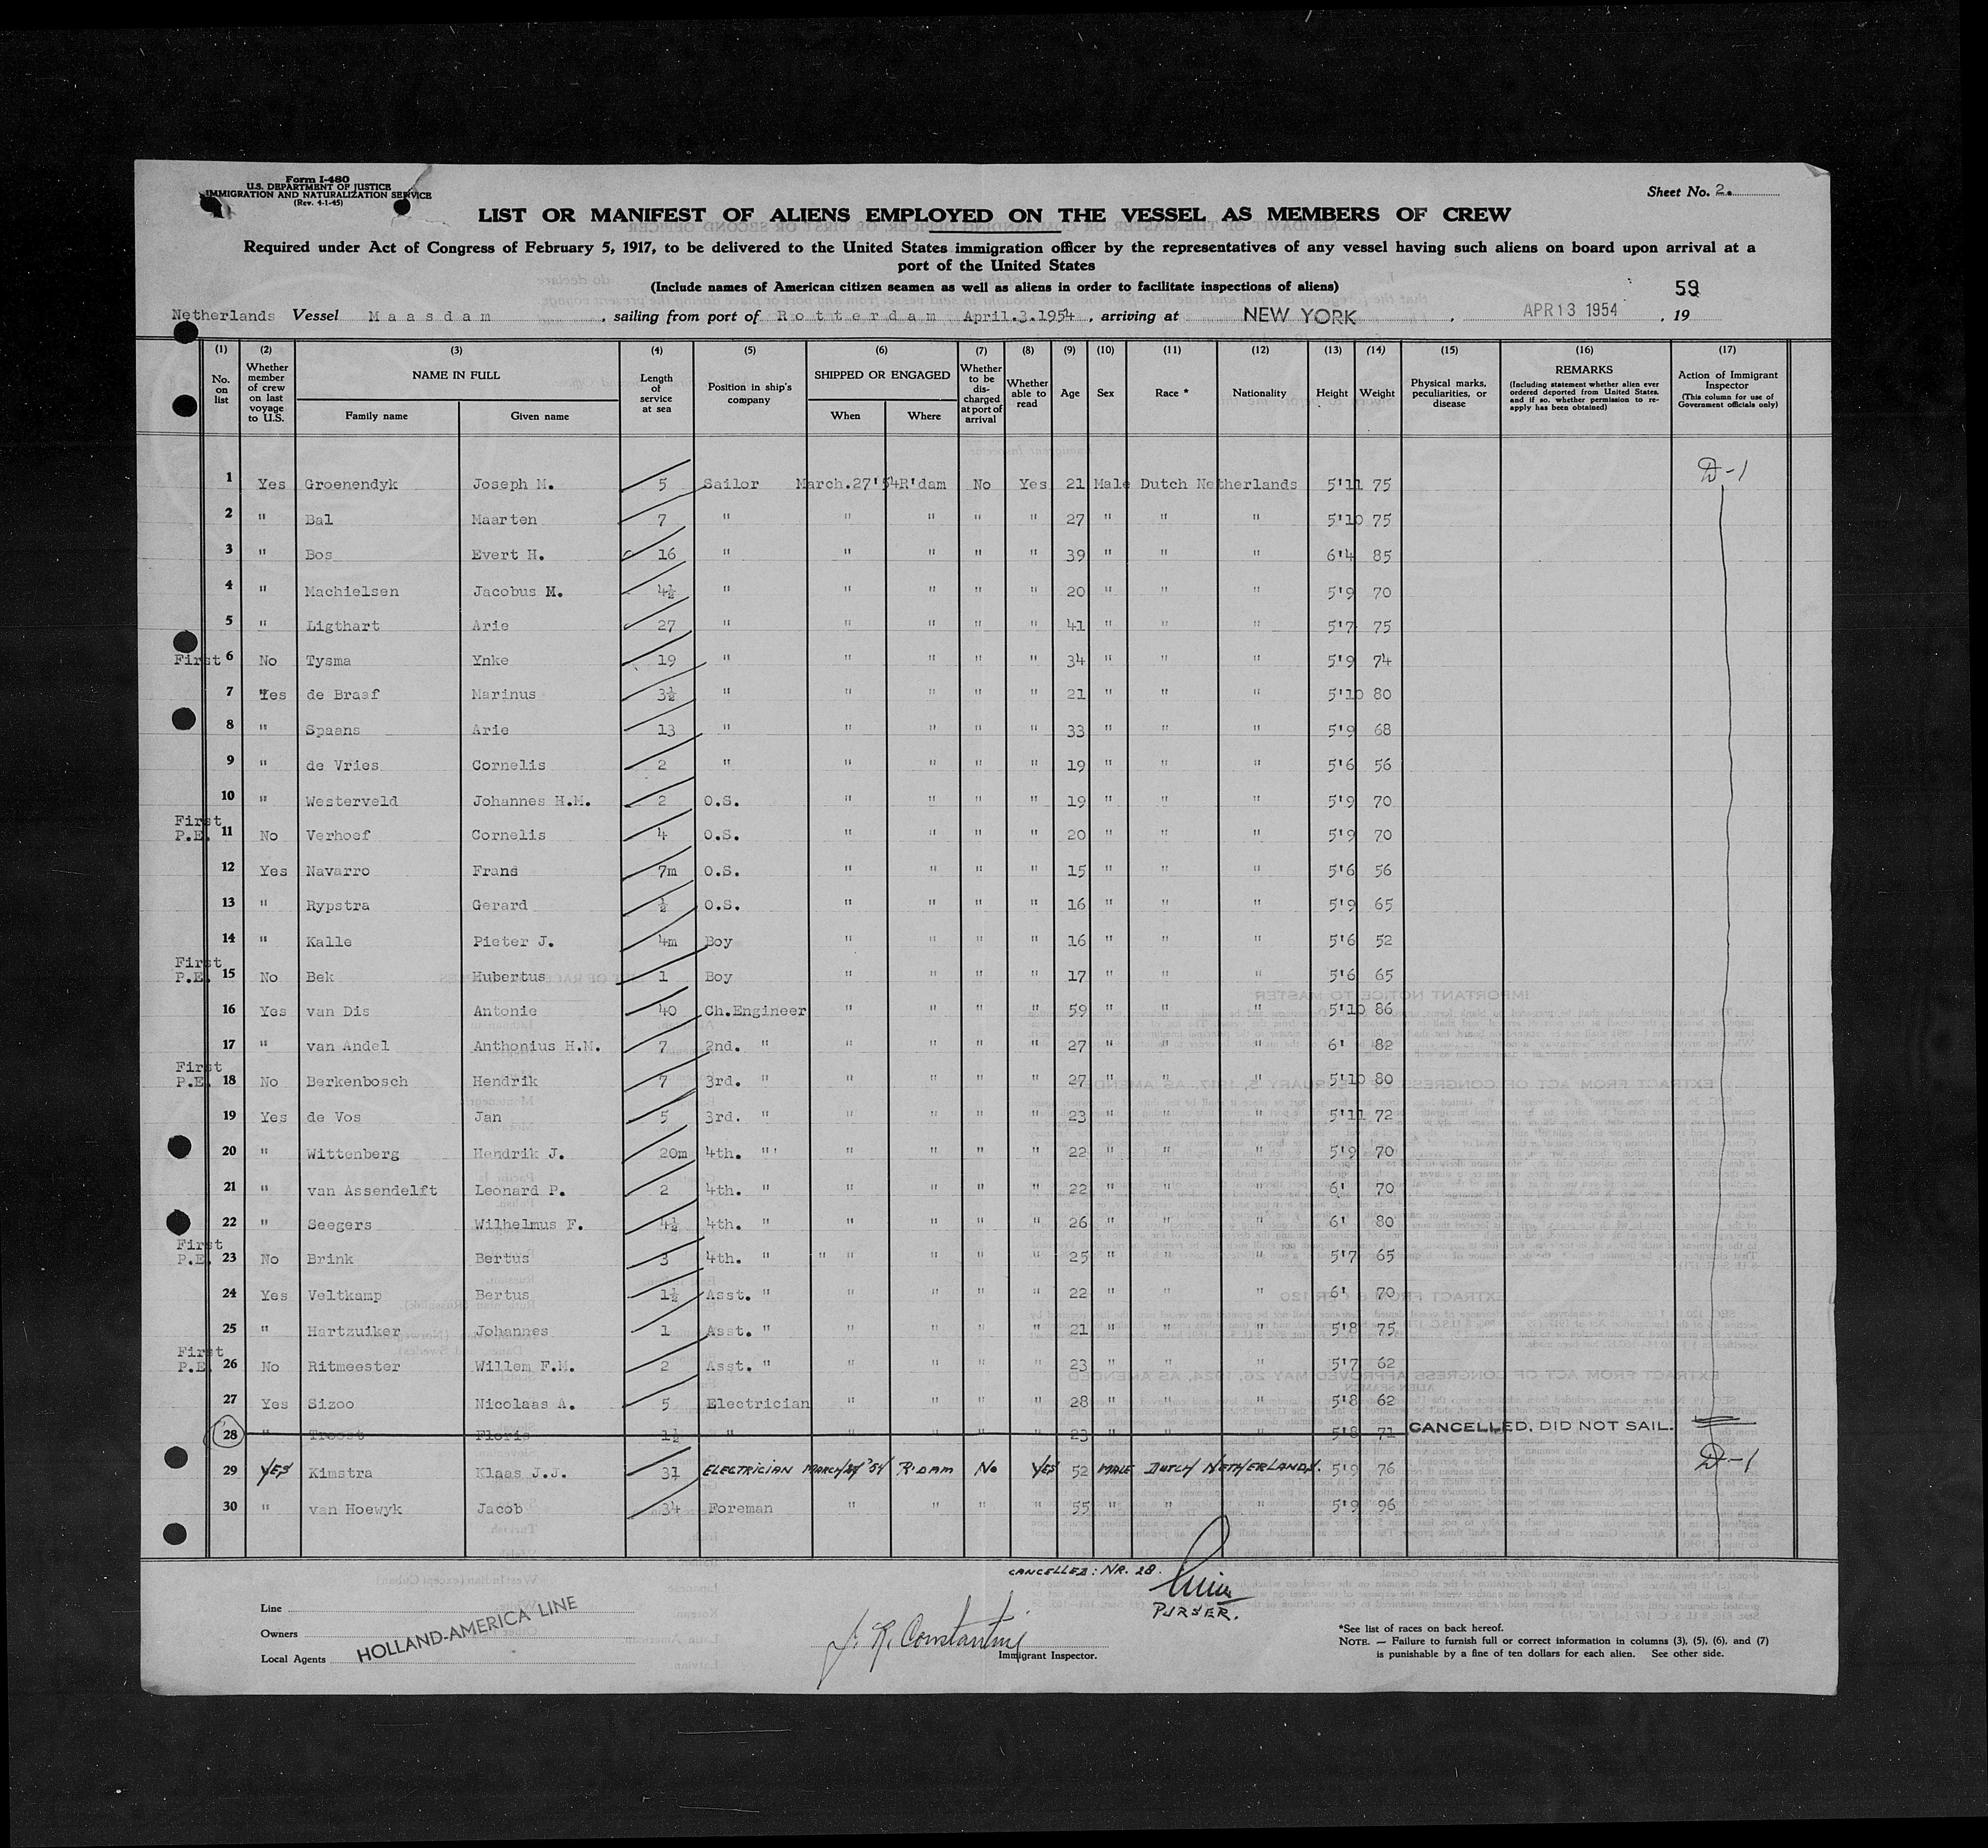 Form I-480
U.S. DEPARTMENT OF JUSTICE
IMMIGRATION AND NATURALIZATION SERVICE
(Rev. 4-1-45)
Sheet No. 2.
LIST OR MANIFEST OF ALIENS EMPLOYED ON THE VESSEL AS MEMBERS OF CREW
Required under Act of Congress of February 5, 1917, to be delivered to the United States immigration officer by the representatives of any vessel having such aliens on board upon arrival at a
port of the United States
(Include names of American citizen seamen as well as aliens in order to facilitate inspections of aliens)
59
Netherlands Vessel Maasdam, sailing from port of Rotterdam April.3.1954, arriving at NEW YORK, APR 13 1954, 19
(1) (2) (3) (4) (5) (6) (7) (8) (9) (10) (11) (12) (13) (14) (15) (16) (17)
No. on list
Whether member of crew on last voyage to U.S.
NAME IN FULL
Family name Given name
Length of service at sea
Position in ship's company
SHIPPED OR ENGAGED
When Where
Whether to be discharged at port of arrival
Whether able to read
Age Sex Race * Nationality Height Weight
Physical marks, peculiarities, or disease
REMARKS
(Including statement whether alien ever ordered deported from United States, and if so, whether permission to re-apply has been obtained)
Action of Immigrant Inspector
(This column for use of Government officials only)
1 Yes Groenendyk Joseph M. 5 Sailor March.27'54 R'dam No Yes 21 Male Dutch Netherlands 5'11 75 D-1
2 " Bal Maarten 7 " " " " " 27 " " " 5'10 75
3 " Bos Evert H. 16 " " " " " 39 " " " 6'4 85
4 " Machielsen Jacobus M. 4½ " " " " " 20 " " " 5'9 70
5 " Ligthart Arie 27 " " " " " 41 " " " 5'7 75
First 6 No Tysma Ynke 19 " " " " " 34 " " " 5'9 74
7 Yes de Braaf Marinus 3½ " " " " " 21 " " " 5'10 80
8 " Spaans Arie 13 " " " " " 33 " " " 5'9 68
9 " de Vries Cornelis 2 " " " " " 19 " " " 5'6 56
10 " Westerveld Johannes H.M. 2 O.S. " " " " 19 " " " 5'9 70
First P.E. 11 No Verhoef Cornelis 4 O.S. " " " " 20 " " " 5'9 70
12 Yes Navarro Frans 7m O.S. " " " " 15 " " " 5'6 56
13 " Rypstra Gerard ½ O.S. " " " " 16 " " " 5'9 65
14 " Kalle Pieter J. 4m Boy " " " " 16 " " " 5'6 52
First P.E. 15 No Bek Hubertus 1 Boy " " " " 17 " " " 5'6 65
16 Yes van Dis Antonie 40 Ch.Engineer " " " " 59 " " " 5'10 86
17 " van Andel Anthonius H.M. 7 2nd. " " " " " 27 " " " 6' 82
First P.E. 18 No Berkenbosch Hendrik 7 3rd. " " " " " 27 " " " 5'10 80
19 Yes de Vos Jan 5 3rd. " " " " " 23 " " " 5'11 72
20 " Wittenberg Hendrik J. 20m 4th. " " " " " 22 " " " 5'9 70
21 " van Assendelft Leonard P. 2 4th. " " " " " 22 " " " 6' 70
22 " Seegers Wilhelmus F. 4½ 4th. " " " " " 26 " " " 6' 80
First P.E. 23 No Brink Bertus 3 4th. " " " " " " 25 " " " 5'7 65
24 Yes Veltkamp Bertus 1½ Asst. " " " " " 22 " " " 6' 70
25 " Hartzuiker Johannes 1 Asst. " " " " " 21 " " " 5'8 75
First P.E. 26 No Ritmeester Willem F.M. 2 Asst. " " " " " 23 " " " 5'7 62
27 Yes Sizoo Nicolaas A. 5 Electrician " " " " 28 " " " 5'8 62
28 " Troost Floris 1½ " " " " " 23 " " " 5'8 71 CANCELLED, DID NOT SAIL.
29 YES Kimstra Klaas J.J. 31 ELECTRICIAN MARCH/27 '54 R'DAM No YES 52 MALE DUTCH NETHERLANDS. 5'9 76 D-1
30 " van Hoewyk Jacob 34 Foreman " " " " 55 " " " 5'9 96
CANCELLED: NR. 28.
PURSER.
Line
Owners
Local Agents
HOLLAND-AMERICA LINE
J. R. Constantine
Immigrant Inspector.
*See list of races on back hereof.
NOTE. — Failure to furnish full or correct information in columns (3), (5), (6), and (7)
is punishable by a fine of ten dollars for each alien. See other side.